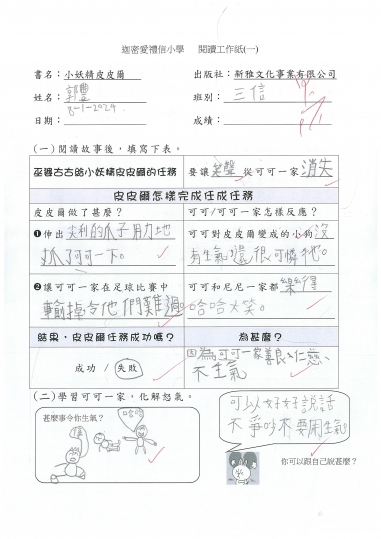 迦密愛禮信小學　閱讀工作紙(一)
書名：小妖精皮皮爾　出版社：新雅文化事業有限公司
姓名：郭豐　班別：三信
日期：8-1-2024　成績：
(一)閱讀故事後，填寫下表。
巫婆古古給小妖精皮皮爾的任務　要讓笑聲從可可一家消失
皮皮爾怎樣完成任成任務
皮皮爾做了甚麼？　可可/可可一家怎樣反應？
❶伸出尖利的爪子用力地　可可對皮皮爾變成的小狗沒
抓了可可一下。　有生氣，還很可憐牠。
❷讓可可一家在足球比賽中　可可和尼尼一家都樂得
輸掉令他們難過。　哈哈大笑。
結果，皮皮爾任務成功嗎？　為甚麼？
成功 / 失敗　因為可可一家善良仁慈、
不生氣
(二)學習可可一家，化解怒氣。
甚麼事令你生氣？
可以好好說話
不爭吵不要用生氣。
你可以跟自己說甚麼？